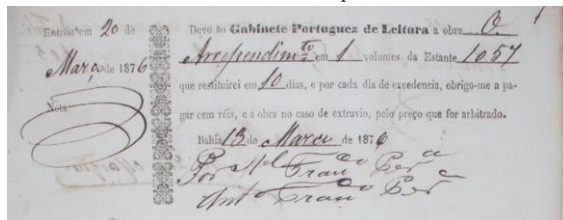 Entrou em 20 de
Março de 1876
Nota
Devo ao Gabinete Portuguez de Leitura a obra O.
Arrependimto em 1 volumes da Estante 1057
que restituirei em 10 dias, e por cada dia de excedencia, obrigo-me a pa-
gar cem réis, e a obra no caso de extravio, pelo preço que for arbitrado.
Bahia 13 de Março de 1876
Por Mel Franco Pera
Anto Franco Pera